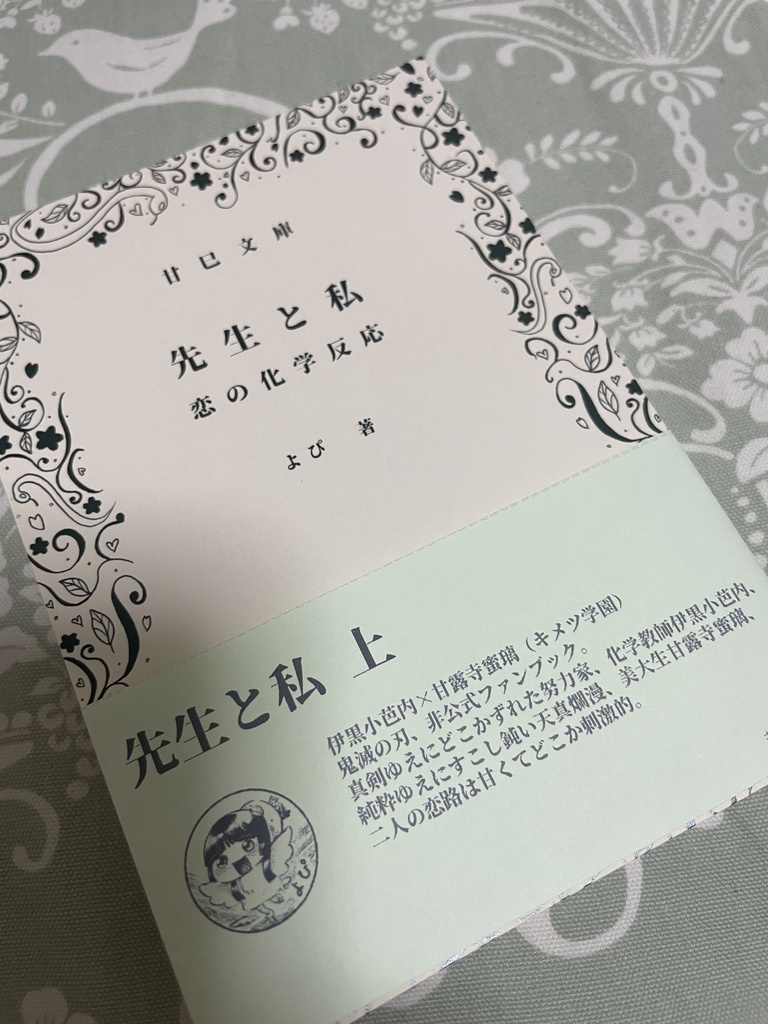 甘巳文庫
先生と私
恋の化学反応
よぴ 著
先生と私 上
伊黒小芭内×甘露寺蜜璃（キメツ学園）
鬼滅の刃、非公式ファンブック。
真剣ゆえにどこかずれた努力家、化学教師伊黒小芭内、
純粋ゆえにすこし鈍い天真爛漫、美大生甘露寺蜜璃、
二人の恋路は甘くてどこか刺激的。
よぴ